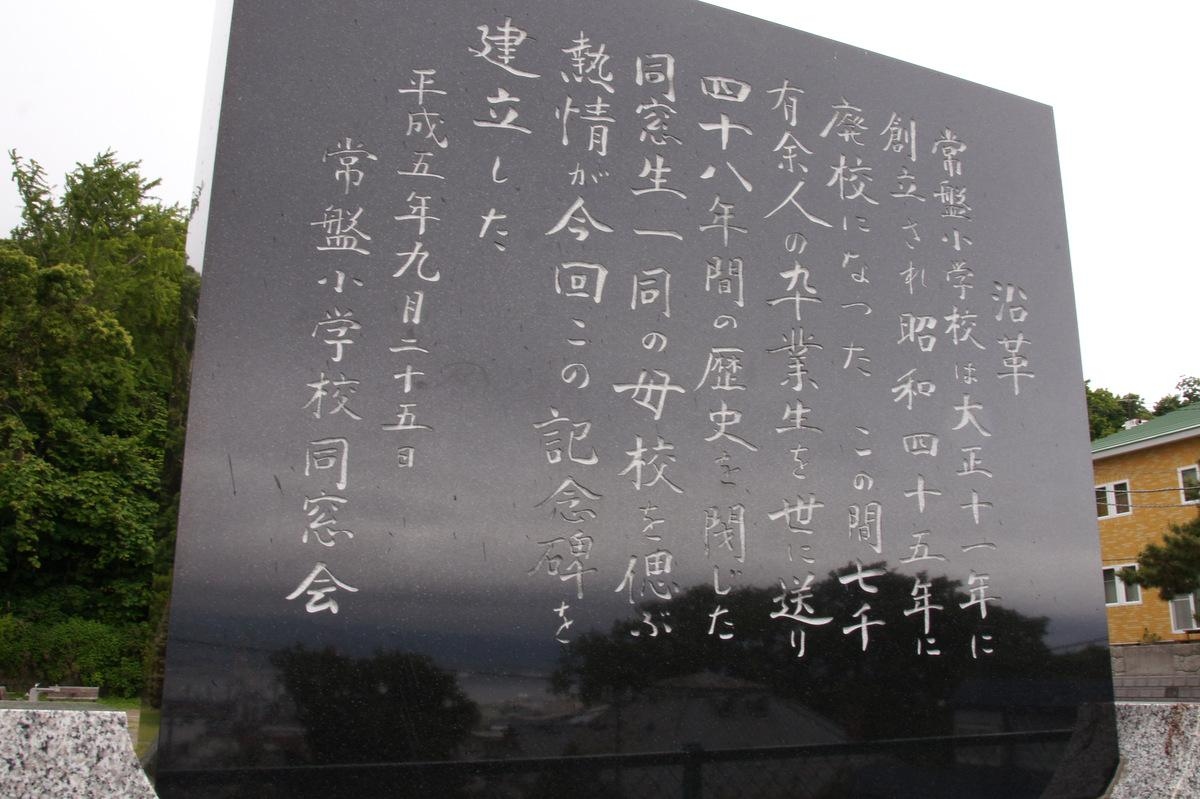 沿革
常盤小学校は大正十一年に
創立され昭和四十五年に
廃校になった この間七千
有余人の卒業生を世に送り
四十八年間の歴史を閉じた
同窓生一同の母校を偲ぶ
熱情が今回この記念碑を
建立した
平成五年九月二十五日
常盤小学校同窓会